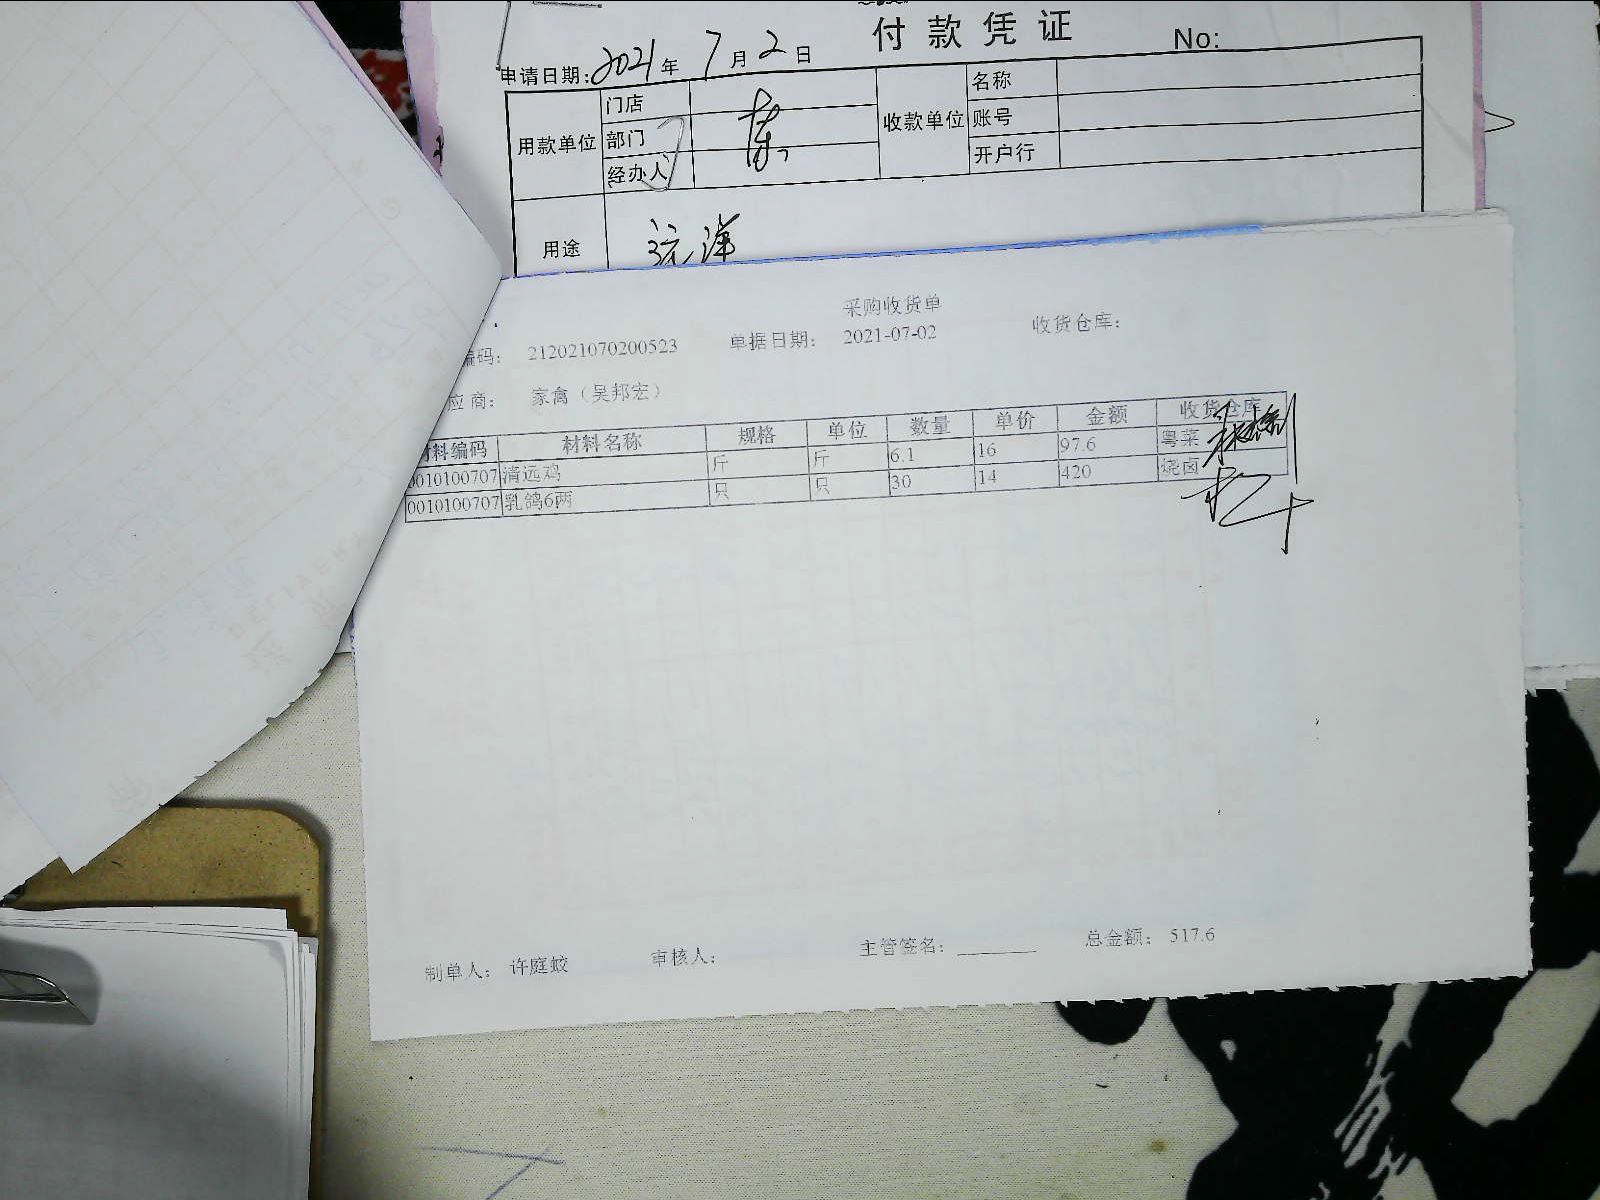 付款凭证
No:
申请日期: 2021年7月2日
用款单位 门店 收款单位 名称
部门 账号
经办人 开户行
用途
采购收货单
编码: 212021070200523 单据日期: 2021-07-02 收货仓库:
应商: 家禽（吴邦宏）
材料编码 材料名称 规格 单位 数量 单价 金额 收货仓库
0010100707 清远鸡 斤 斤 6.1 16 97.6 粤菜
0010100707 乳鸽6两 只 只 30 14 420 烧卤
制单人: 许庭蛟 审核人: 主管签名: 总金额: 517.6